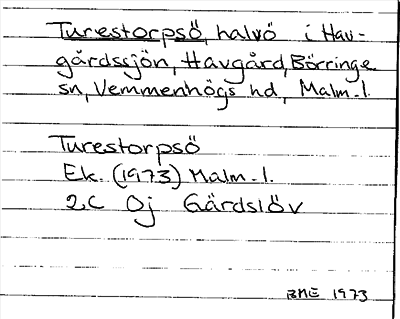 Turestorpsö, halvö i Hav-
gårdssjön, Havgård, Börringe
sn, Vemmenhögs hd, Malm.l.
Turestorpsö
Ek. (1973) Malm.l.
2C 0j Gärdslöv
BME 1973